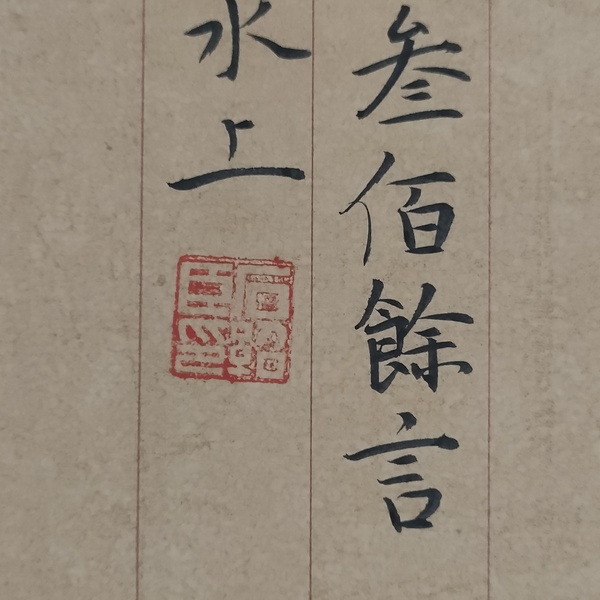 叁佰餘言
水上